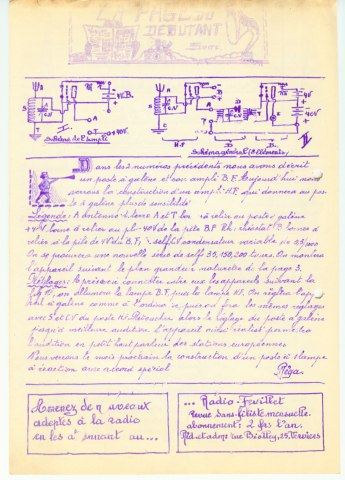 PAGE DU
DEBUTANT
Suite
4V B.
+40V
I.
Schéma de l'ampli
4V
40V
H-F
D
B
II
Schéma général
Dans les numéros précédents nous avons décrit
un poste à galène et son ampli B.F. Aujourd'hui nous
verrons la construction d'un ampli H.F. qui donnera au pos-
te à galène plus de sensibilité
Légende: A antenne T. terre A et T bor à relier au poste à galène
+40V borne à relier au pl. 40V de la pile B.F. Rh. rhéostat
relier à la pile de 4V du B.F. S. self CV condensateur variable
On se procurera une nouvelle série de selfs 35, 150, 200 tours. On montera
l'appareil suivant le plan grandeur naturelle de la page 3.
Réglages: Après avoir connecter entre eux les appareils suivant la
on allume la lampe B.F. puis la lampe H.F. On règlera l'app
à galène comme à l'ordinaire, puis on fera les mêmes réglages
avec S et CV du poste H.F. Retoucher alors le réglage du poste à galène
jusqu'à meilleure audition. L'appareil ainsi réalisé permettra
l'audition en petit haut parleur des stations européennes
Nous verrons le mois prochain la construction d'un poste à 1 lampe
à réaction avec accord spécial
Amenez de nouveaux
adeptes à la radio
en les suivant au...
... Radio-Feuillet
Revue Sans-filiste mensuelle.
abonnement: 2 frs l'an.
Réd. et adm: rue Bidlay, 25, Verviers